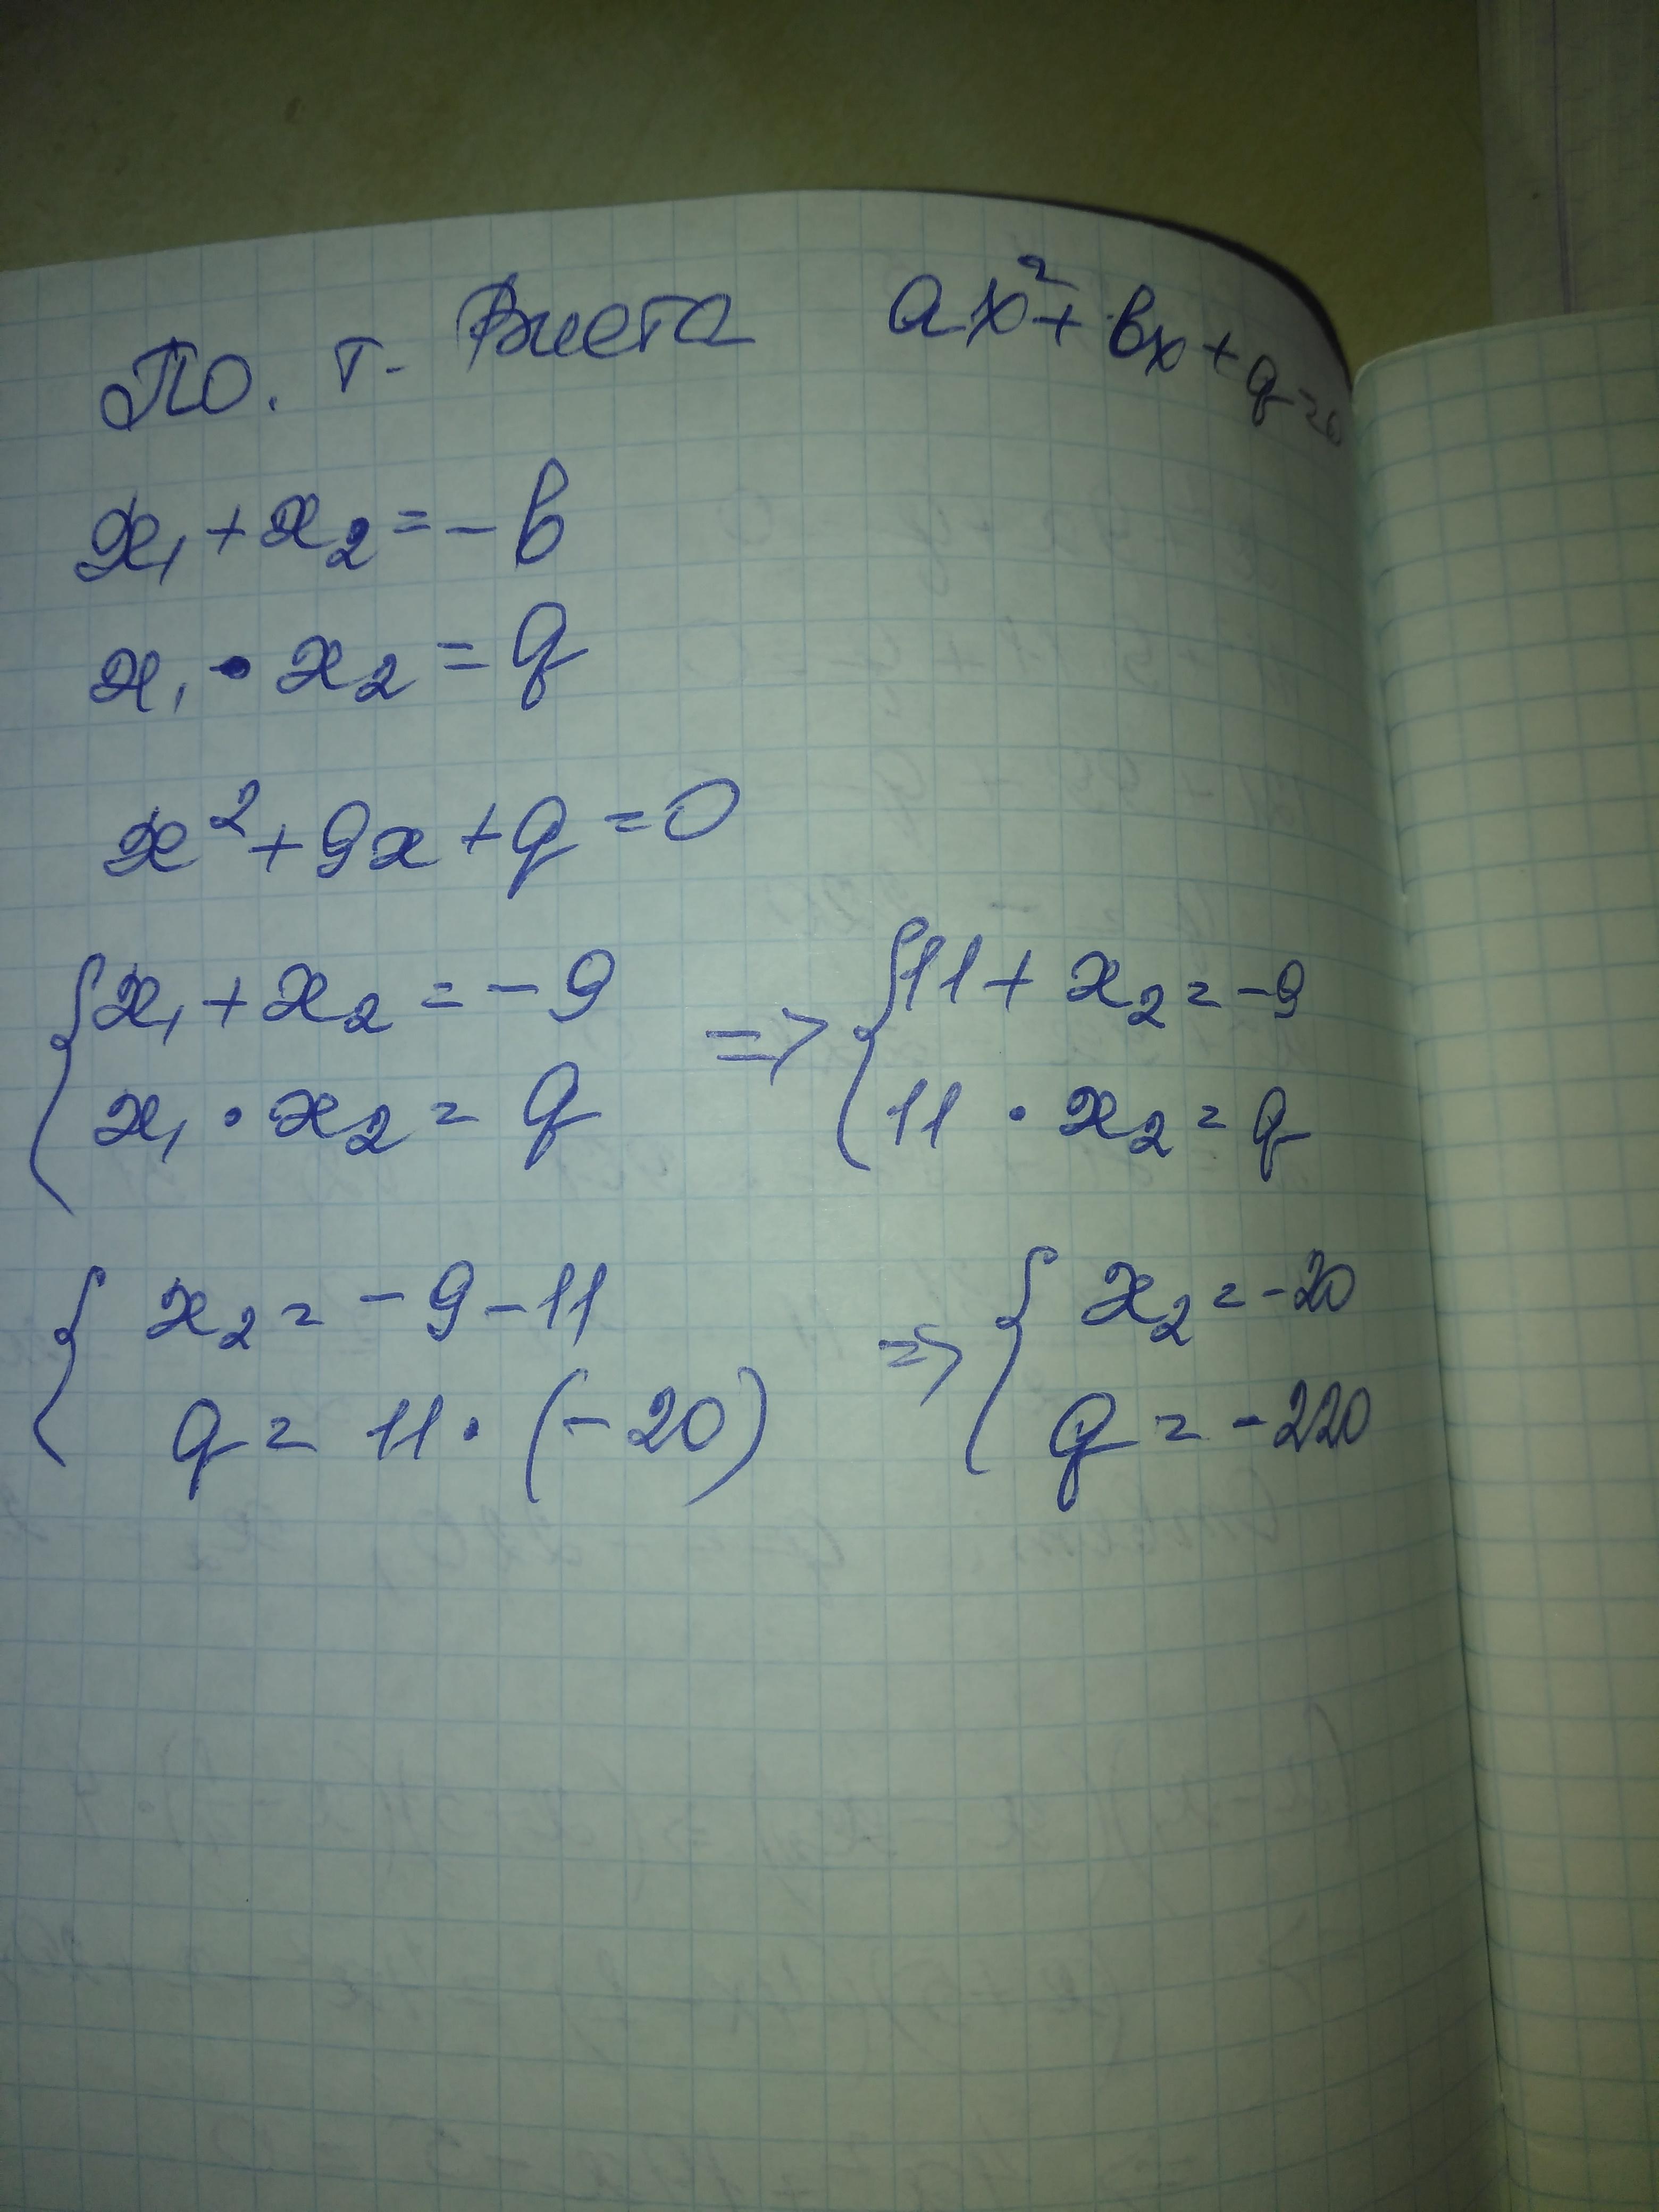 По. т. Виета ax²+bx+q=0
x₁+x₂=-b
x₁•x₂=q
x²+9x+q=0
{x₁+x₂=-9 => {11+x₂=-9
x₁•x₂=q 11•x₂=q
{x₂=-9-11 => {x₂=-20
q=11•(-20) q=-220